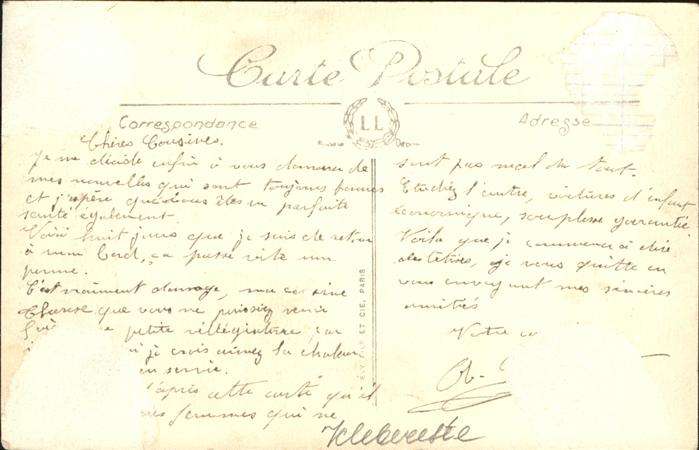 Carte Postale
Correspondance
LL
Adresse
Chères Cousines.
Je me décide enfin à vous donner de
mes nouvelles qui sont toujours bonnes
et j'espère que vous êtes en parfaite
santé également.
Voici huit jours que je suis de retour
à mon bord, ca passe vite une
perme.
C'est vraiment domage, ma cousine
que vous ne puissiez venir
petite villégiature car
je crois aimez la chaleur
servie.
d'après cette carte qu'il
femmes qui ne
sont pas mal du tout.
Etudiez l'autre, voitures d'enfant
économique, souplesse garantie
Voila que je commence à dire
des bêtises, je vous quitte en
vous envoyant mes sincères
amitiés
Votre
LEVY FILS ET CIE, PARIS